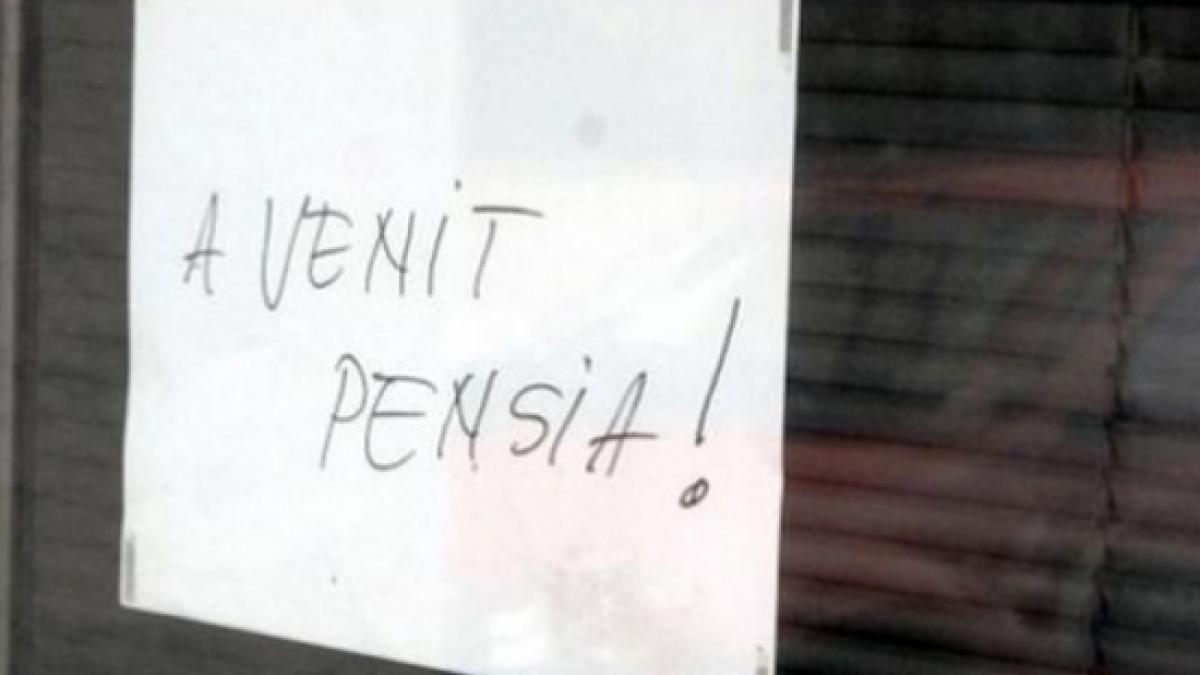 A VENIT
PENSIA!